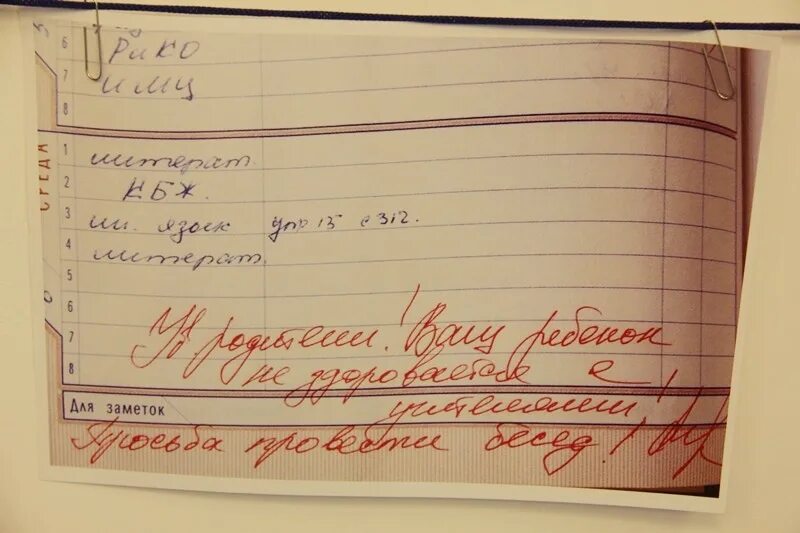 6 РиКО
7 ИМЦ
8
СРЕДА
1 литерат.
2 КБЖ.
3 ин. язык упр 15 с 312.
4 литерат.
5
6
7 Ув. родители! Ваш ребенок
8 не здоровается с
Для заметок учителями!
Просьба провести бесед!